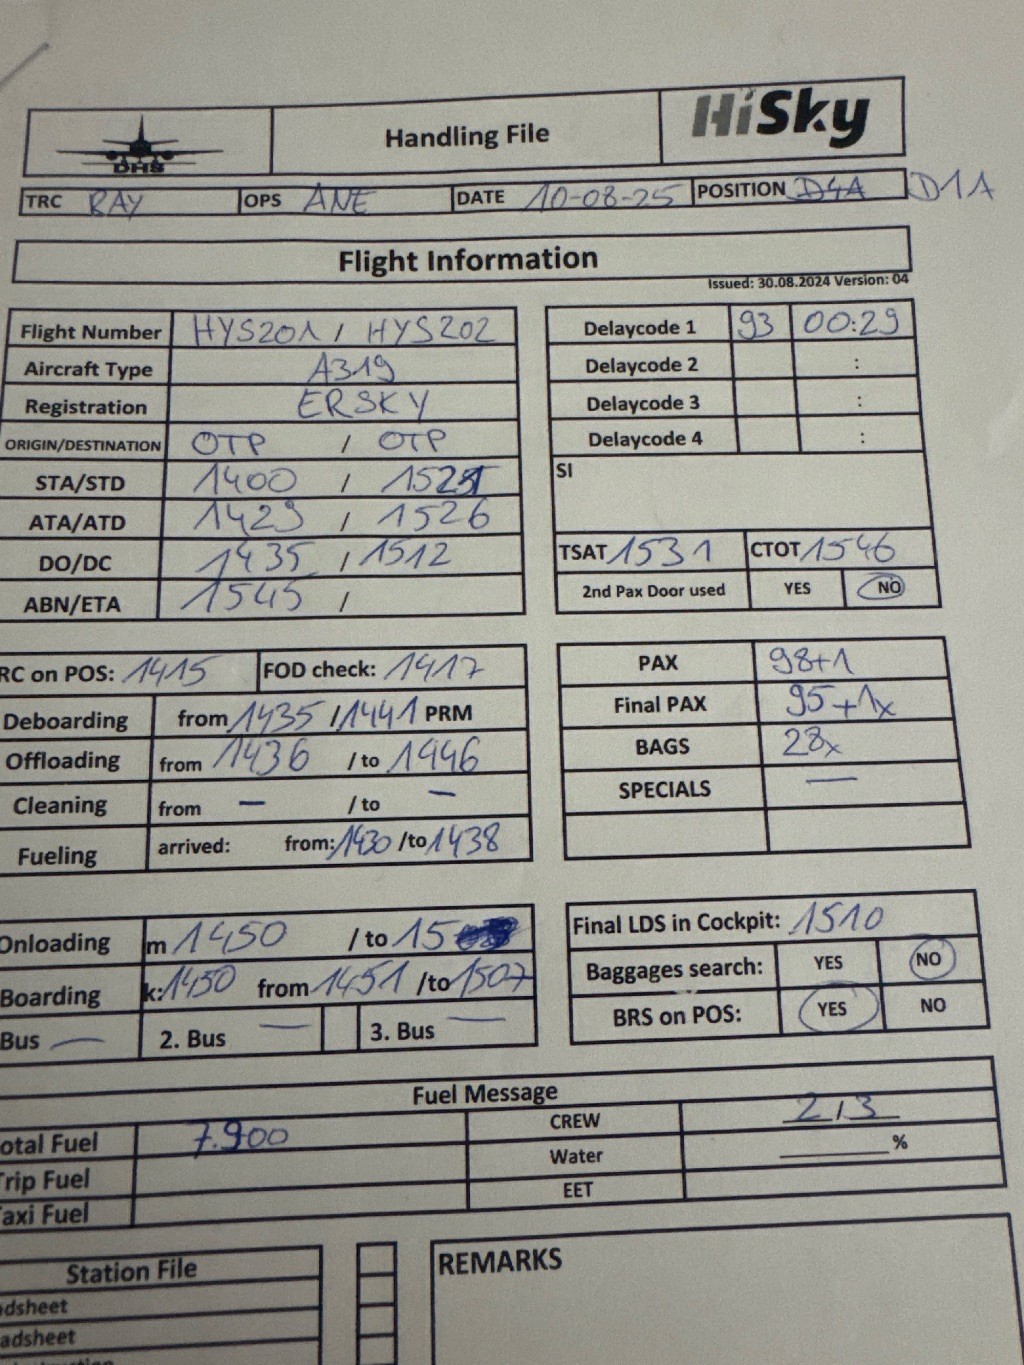 DHS Handling File HiSky
TRC RAY OPS ANE DATE 10-08-25 POSITION D4A D1A
Flight Information
Issued: 30.08.2024 Version: 04
Flight Number HYS201 / HYS202
Aircraft Type A319
Registration ERSKY
ORIGIN/DESTINATION OTP / OTP
STA/STD 1400 /
ATA/ATD 1429 / 1526
DO/DC 1435 / 1512
ABN/ETA 1545 /
Delaycode 1 93 00:29
Delaycode 2 :
Delaycode 3 :
Delaycode 4 :
SI
TSAT 1531 CTOT 1546
2nd Pax Door used YES NO
RC on POS: 1415 FOD check: 1417
Deboarding from 1435 / 1441 PRM
Offloading from 1436 / to 1446
Cleaning from — / to —
Fueling arrived: from: 1430 / to 1438
PAX 98+1
Final PAX 95+1x
BAGS 28x
SPECIALS —
Onloading m 1450 / to 15
Boarding k: 1450 from 1451 / to 1507
Bus — 2. Bus — 3. Bus —
Final LDS in Cockpit: 1510
Baggages search: YES NO
BRS on POS: YES NO
Fuel Message
otal Fuel 7.900 CREW 2 / 3
Trip Fuel Water %
axi Fuel EET
Station File
adsheet
adsheet
REMARKS